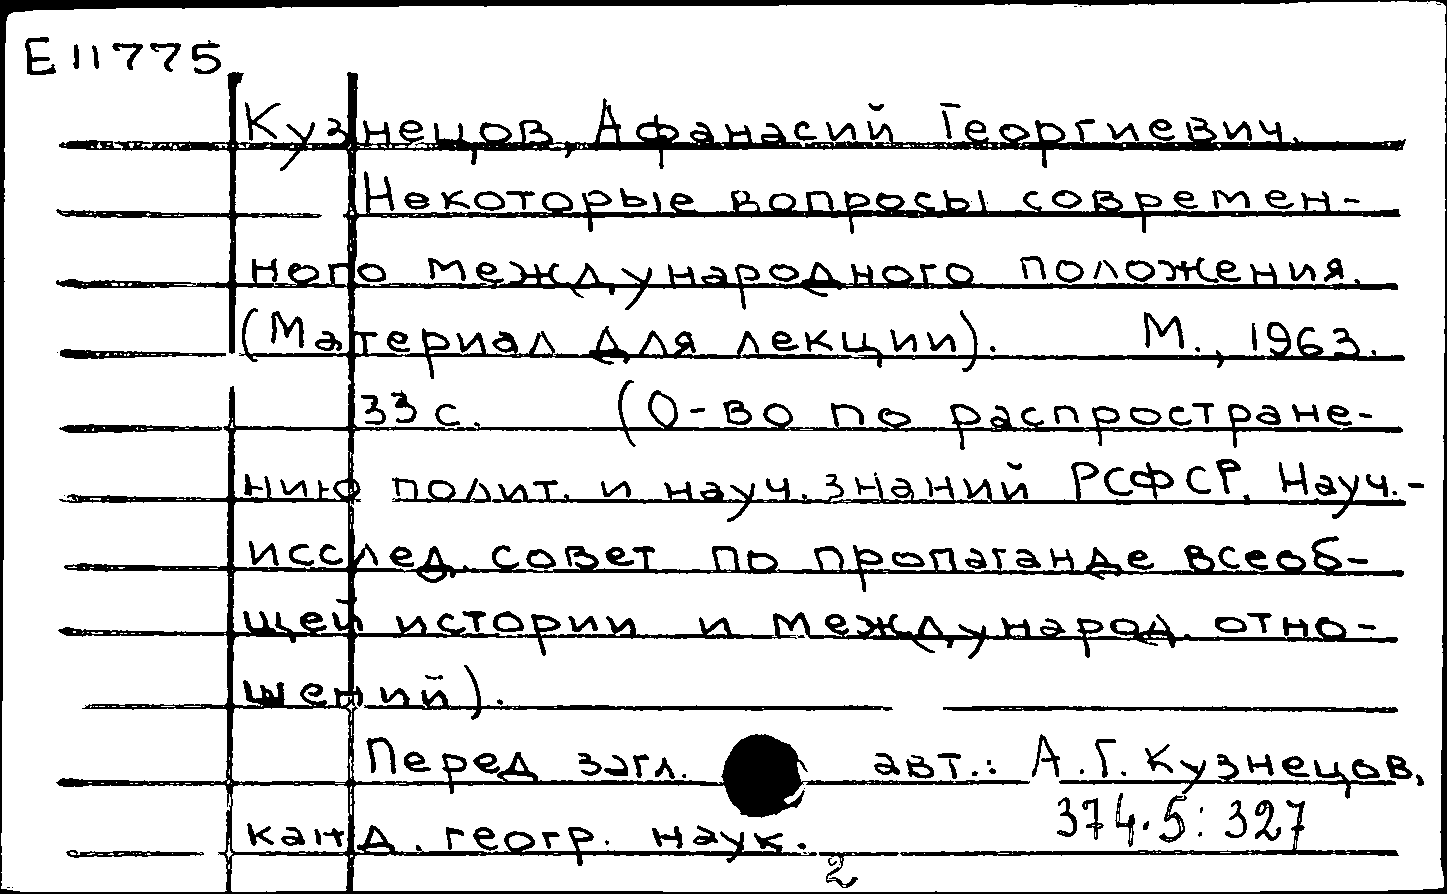 Е11775
Кузнецов, Афанасий Георгиевич.
Некоторые вопросы современ-
ного международного положения.
(Материал для лекции). М., 1963.
33 с. (О-во по распростране-
нию полит. и науч. знаний РСФСР. Науч.-
исслед. совет по пропаганде всеоб-
щей истории и международ. отно-
шений).
Перед загл. авт.: А.Г. Кузнецов,
канд. геогр. наук.
374.5:327
2